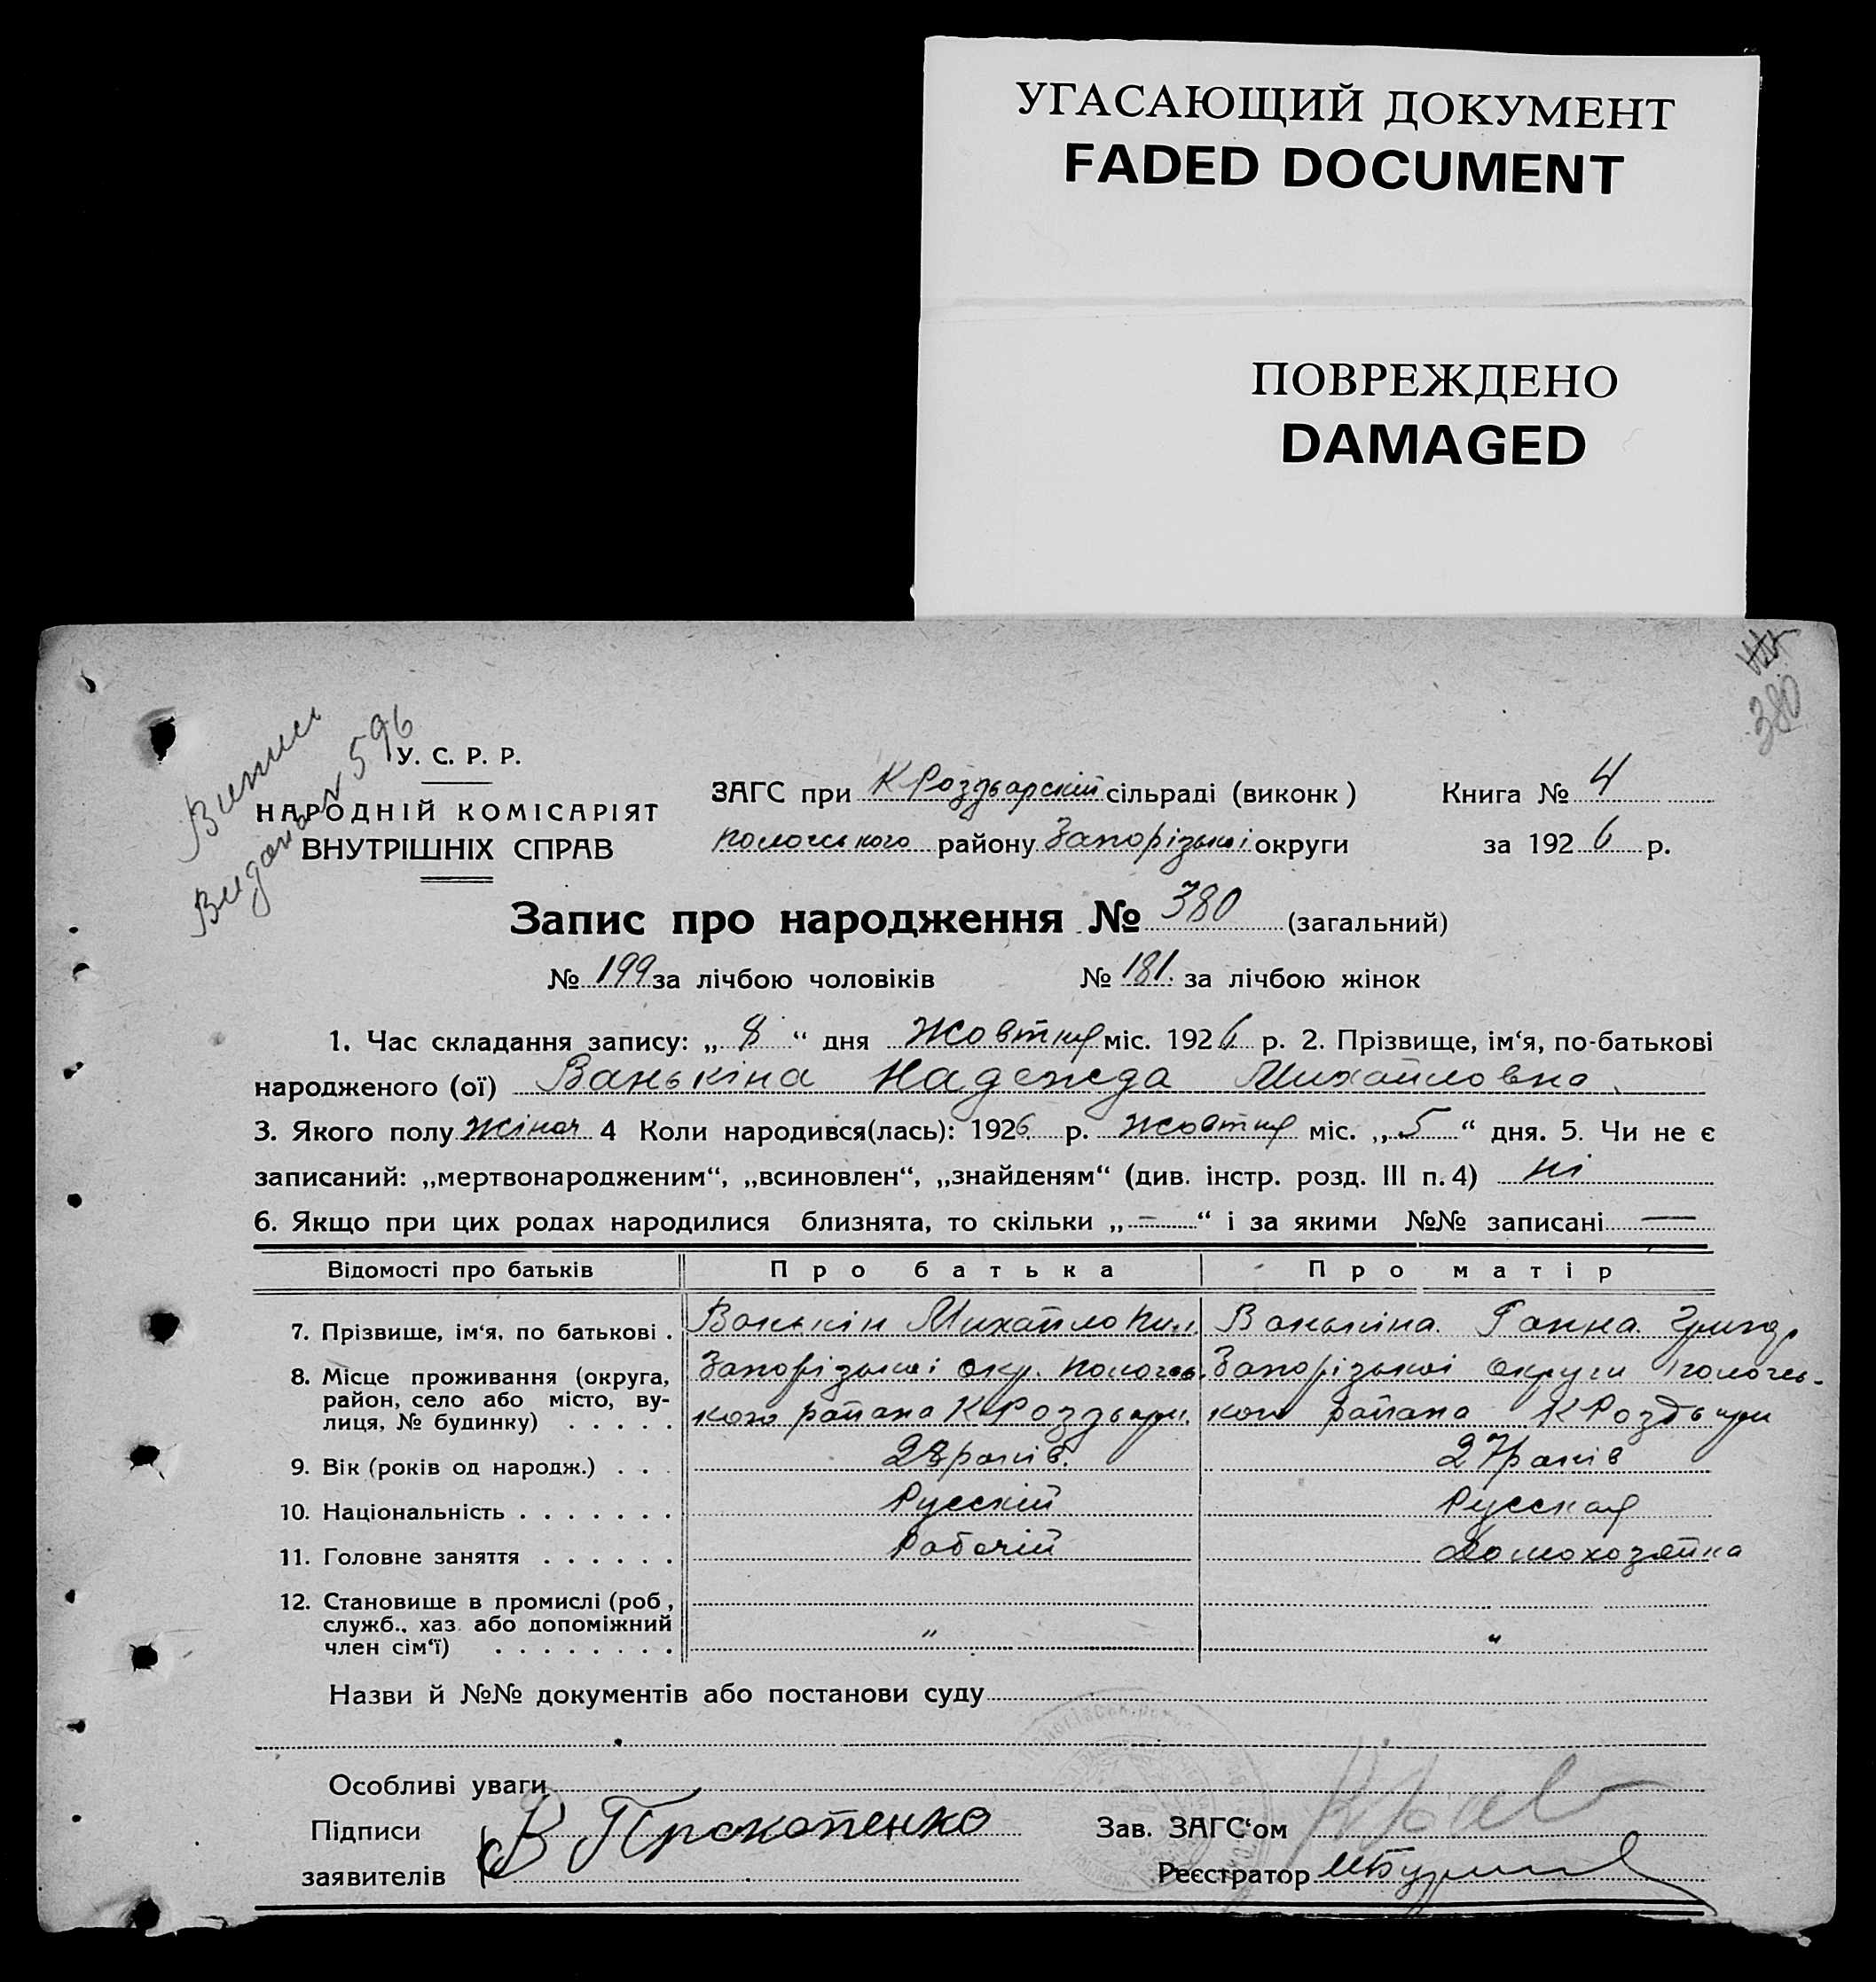 УГАСАЮЩИЙ ДОКУМЕНТ
FADED DOCUMENT
ПОВРЕЖДЕНО
DAMAGED
380
Видано 596
У. С. Р. Р.
НАРОДНІЙ КОМІСАРІЯТ
ВНУТРІШНІХ СПРАВ
ЗАГС при К Роздорскій сільраді (виконк)
пологського району Запорізької округи
Книга № 4
за 1926 р.
Запис про народження № 380 (загальний)
№ 199 за лічбою чоловіків № 181. за лічбою жінок
1. Час складання запису: „ 8 “ дня Жовтня міс. 1926 р. 2. Прізвище, ім‘я, по-батькові
народженого (ої) Ванькіна Надежда Михайловна
3. Якого полу жіноч 4 Коли народився(лась): 1926 р. жовтня міс. „ 5 “ дня. 5. Чи не є
записаний: „мертвонародженим“, „всиновлен“, „знайденям“ (див. інстр. розд. III п. 4) ні
6. Якщо при цих родах народилися близнята, то скільки „ — “ і за якими №№ записані —
Відомості про батьків Про батька Про матір
7. Прізвище, ім‘я, по батькові . Ванькін Михайло Ванькіна Ганна Григор
8. Місце проживання (округа, Запорізької окр. пологсь- Запорізької округи пологсь-
район, село або місто, ву-
лиця, № будинку) . . . . . кого района К Роздори кого района К Роздори
9. Вік (років од народж.) . . . 28 років. 27 років
10. Національність . . . . . . . Русскій Русская
11. Головне заняття . . . . . . Рабочій Домохозяйка
12. Становище в промислі (роб,
служб., хаз. або допоміжний
член сім‘ї) . . . . . . . . " "
Назви й №№ документів або постанови суду
Особливі уваги
Підписи В Прокопенко Зав. ЗАГС‘ом
заявителів Реєстратор